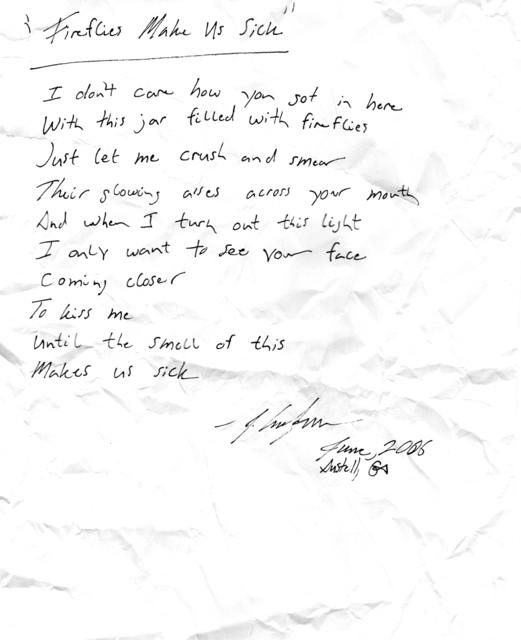 "Fireflies Make Us Sick"
I don't care how you got in here
With this jar filled with fireflies
Just let me crush and smear
Their glowing asses across your mouth
And when I turn out this light
I only want to see your face
Coming closer
To kiss me
Until the smell of this
Makes us sick
June, 2006
Austell, GA